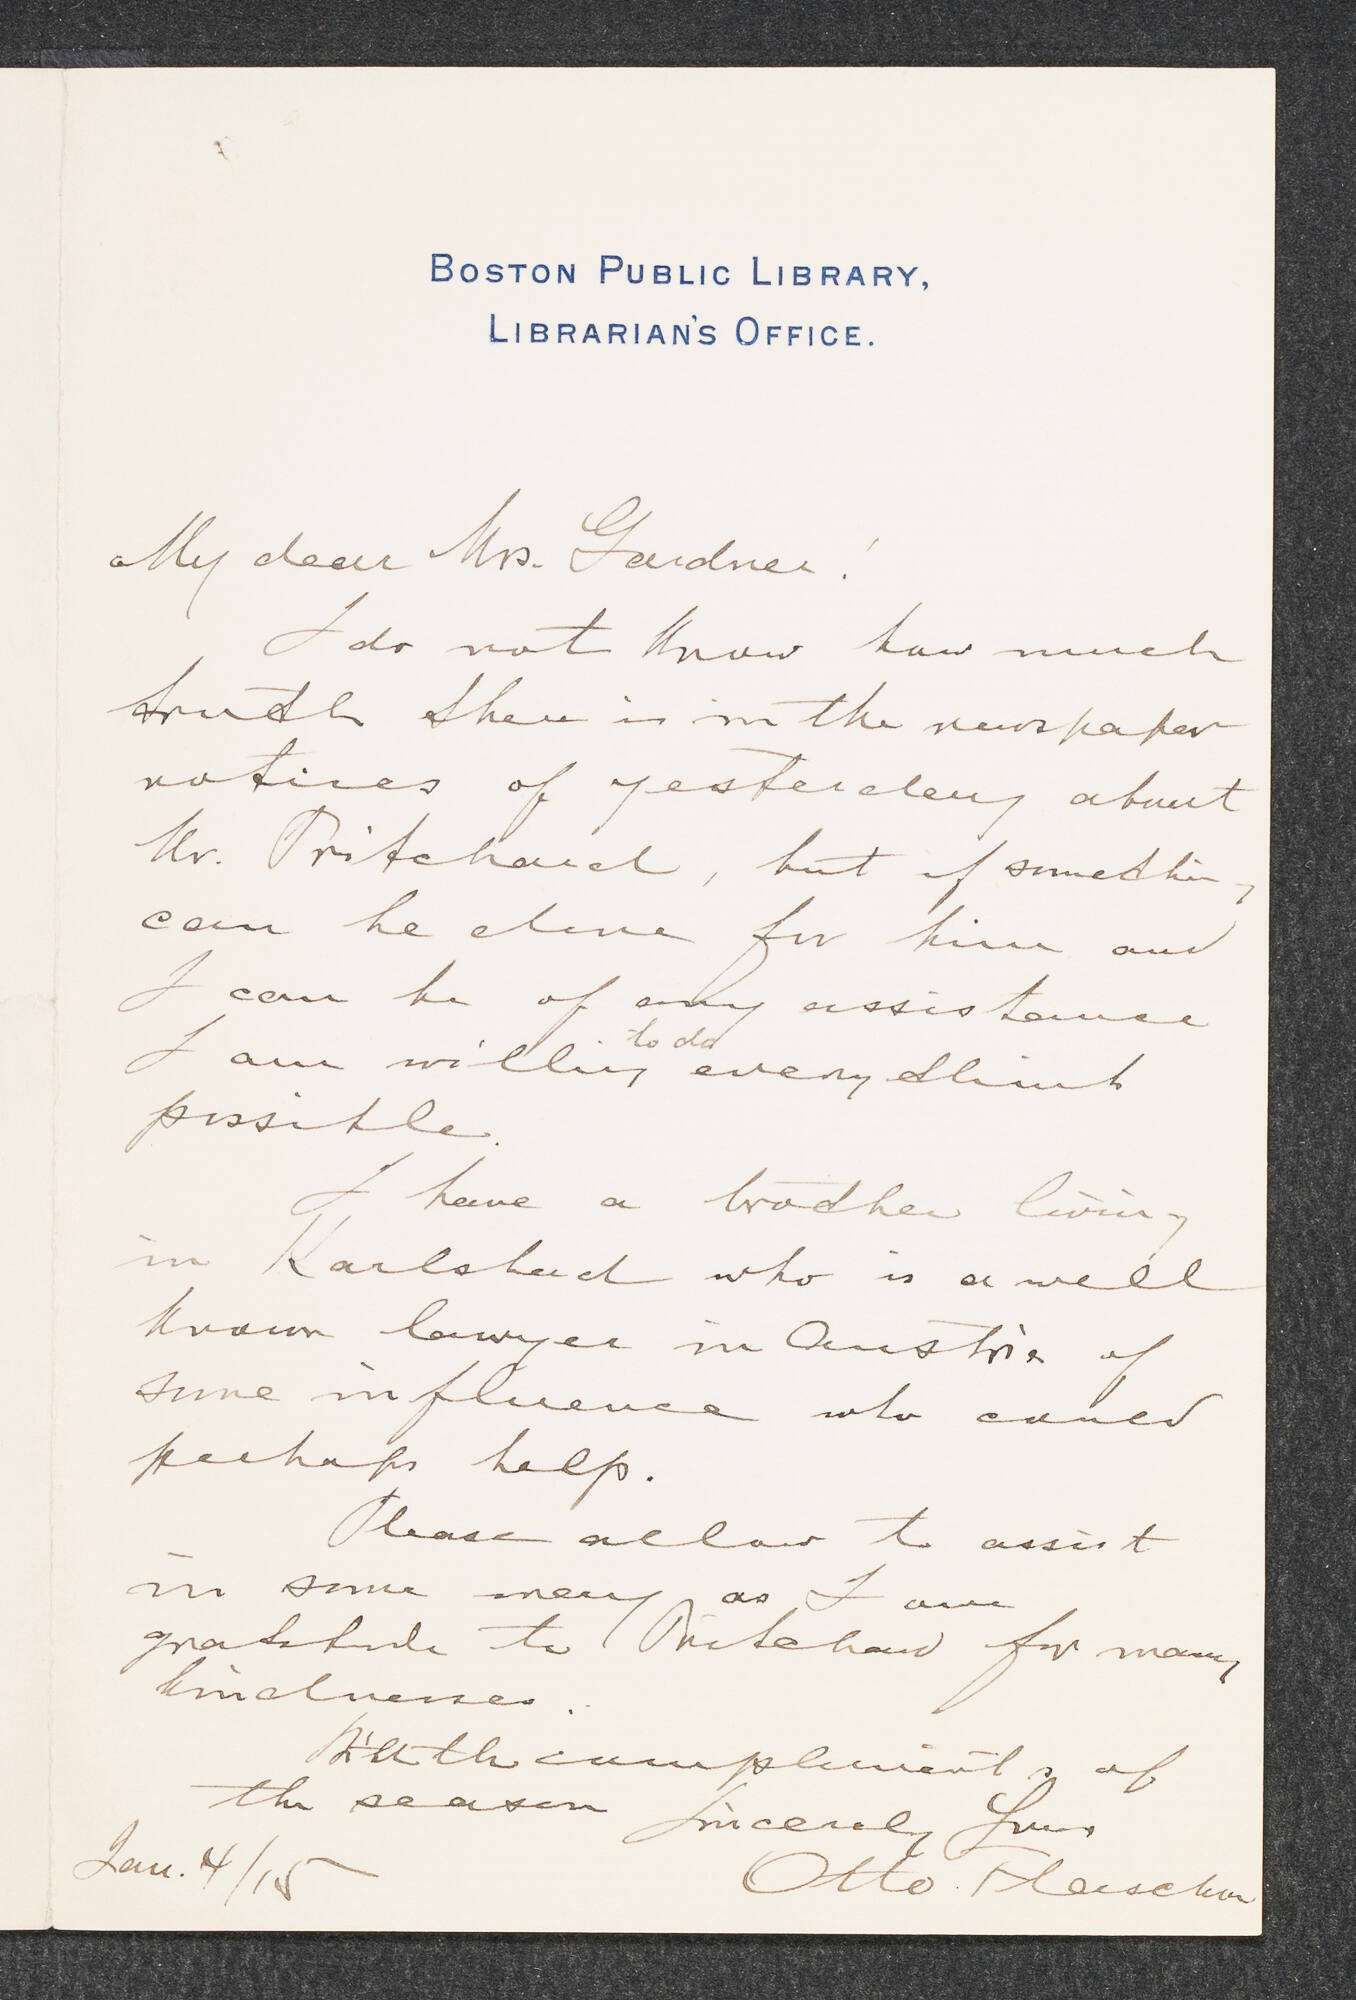 BOSTON PUBLIC LIBRARY,
LIBRARIAN'S OFFICE.
My dear Mrs. Gardner!
I do not know how much
truth there is in the newspaper
notices of yesterday about
Mr. Pritchard, but if something
can be done for him and
I can be of any assistance
to do
I am willing everything
possible.
I have a brother living
in Karlsbad who is a well
known lawyer in Austria of
some influence who could
perhaps help.
Please allow to assist
in some way as I owe
gratitude to Pritchard for many
kindnesses.
With compliments of
the season Sincerely Yours
Otto Fleischner
Jan. 4/15